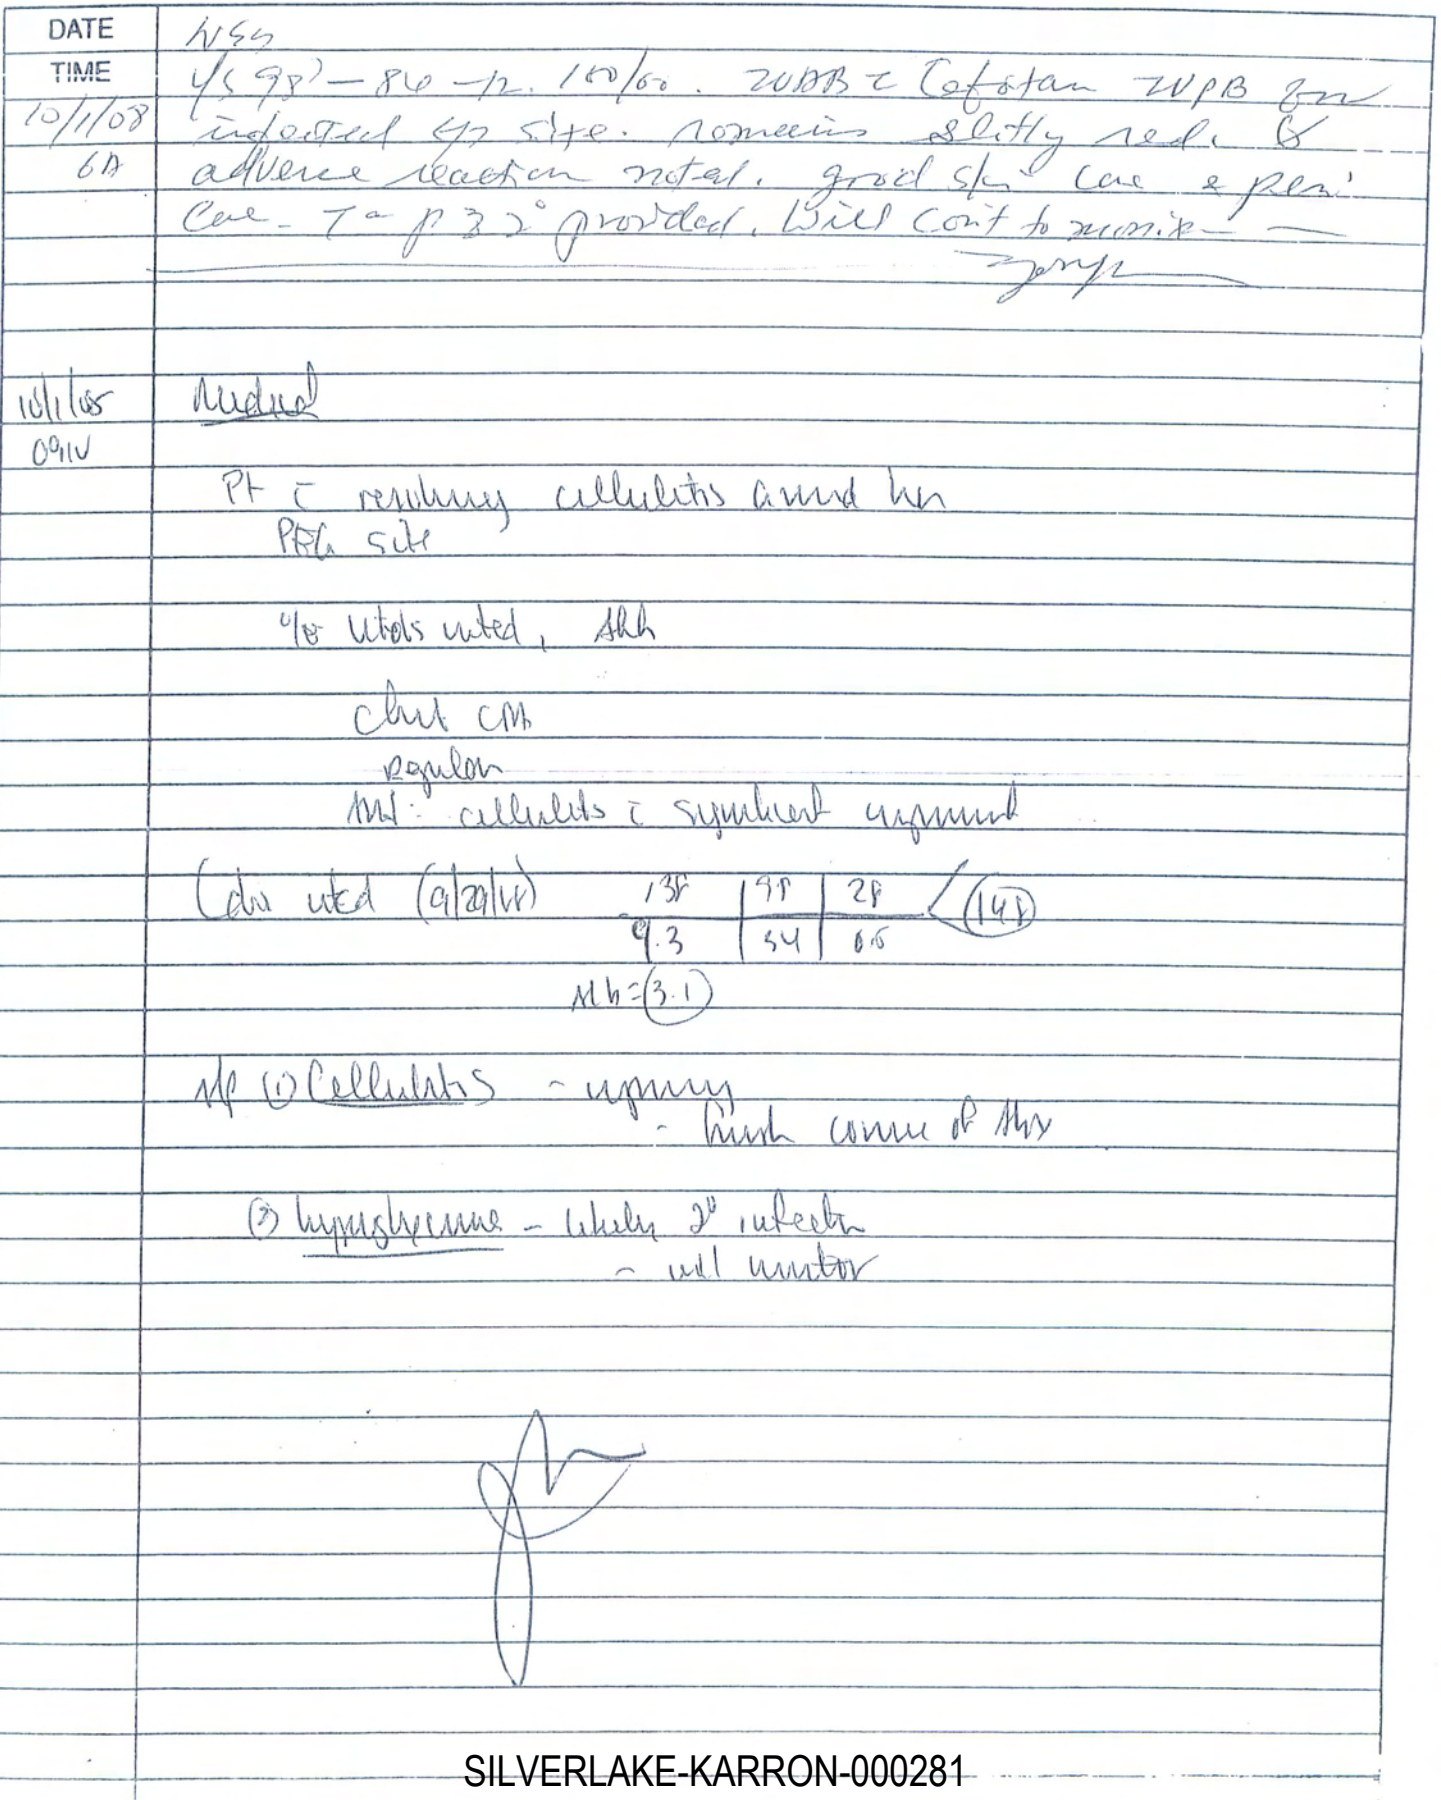 DATE
TIME
NSG
V/S 98² - 86 - 12. 100/60. IVABB c̄ Cefotan IVPB for
10/1/08 infected GT site. remains slitly red. Ø
6A adverse reaction noted. good skin care & peri
care - T & P q 2° provided. Will con't to
10/1/08 Medical
Pt c̄ resolving cellulitis around her
PEG site
O/E Vitals noted,
chest
regular
cellulitis c̄
Labs noted (9/29/08) 138 | 98 | 28 < 148
9.3 | 34 | 0.6
Alb = 3.1
A/P (1) Cellulitis - improving
- finish course of Abx
(2) hyperglycemia - likely 2° infection
- will monitor
SILVERLAKE-KARRON-000281